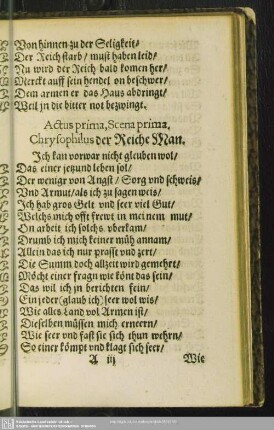 Von hinnen zu der Seligkeit/
Der Reich starb/ must haben leid/
Nu wird der Reich bald komen her/
Merckt auff sein hendel on beschwer/
Dem armen er das Haus abdringt/
Weil jn die bitter not bezwingt.
Actus prima, Scena prima,
Chrysophilus der Reiche Man.
Ich kan vorwar nicht gleuben wol/
Das einer jetzund leben sol/
Der weniger von Angst/ Sorg vnd schweis/
Vnd Armut/ als ich zu sagen weis/
Ich hab gros Gelt vnd seer viel Gut/
Welchs mich offt frewt in meinem mut/
On arbeit ich solchs vberkam/
Drumb ich mich keiner müh annam/
Allein das ich nur prasst vnd zert/
Die Summ doch allzeit wird gemehrt/
Möcht einer fragn wie könt das sein/
Das wil ich jn berichten fein/
Ein jeder (glaub ich) seer wol wis/
Wie alles Land vol Armen ist/
Dieselben müssen mich erneern/
Wie seer vnd fast sie sich thun wehrn/
So einer kömpt vnd klagt sich seer/
A iij
Wie